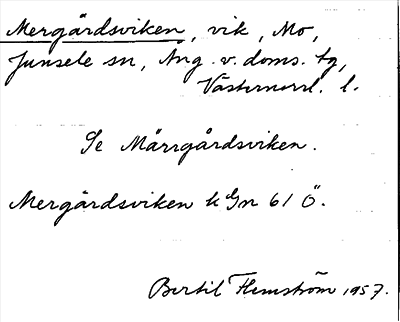 Mergårdsviken, vik, Mo,
Junsele sn, Ång. v. doms. tg,
Västernorrl. l.
Se Mårrgårdsviken.
Mergårdsviken k Gn 61 Ö.
Bertil Flemström 1957.